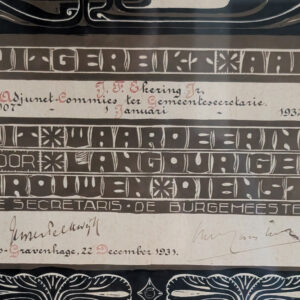 UITGEREIKT AAN
J. F. Ekering Jr.
Adjunct-Commies ter Gemeentesecretarie
1907 1 Januari 1932
UIT WAARDEERING
VOOR LANGDURIGEN
TROUWEN DIENST
DE SECRETARIS · DE BURGEMEESTER
's-Gravenhage, 22 December 1931.